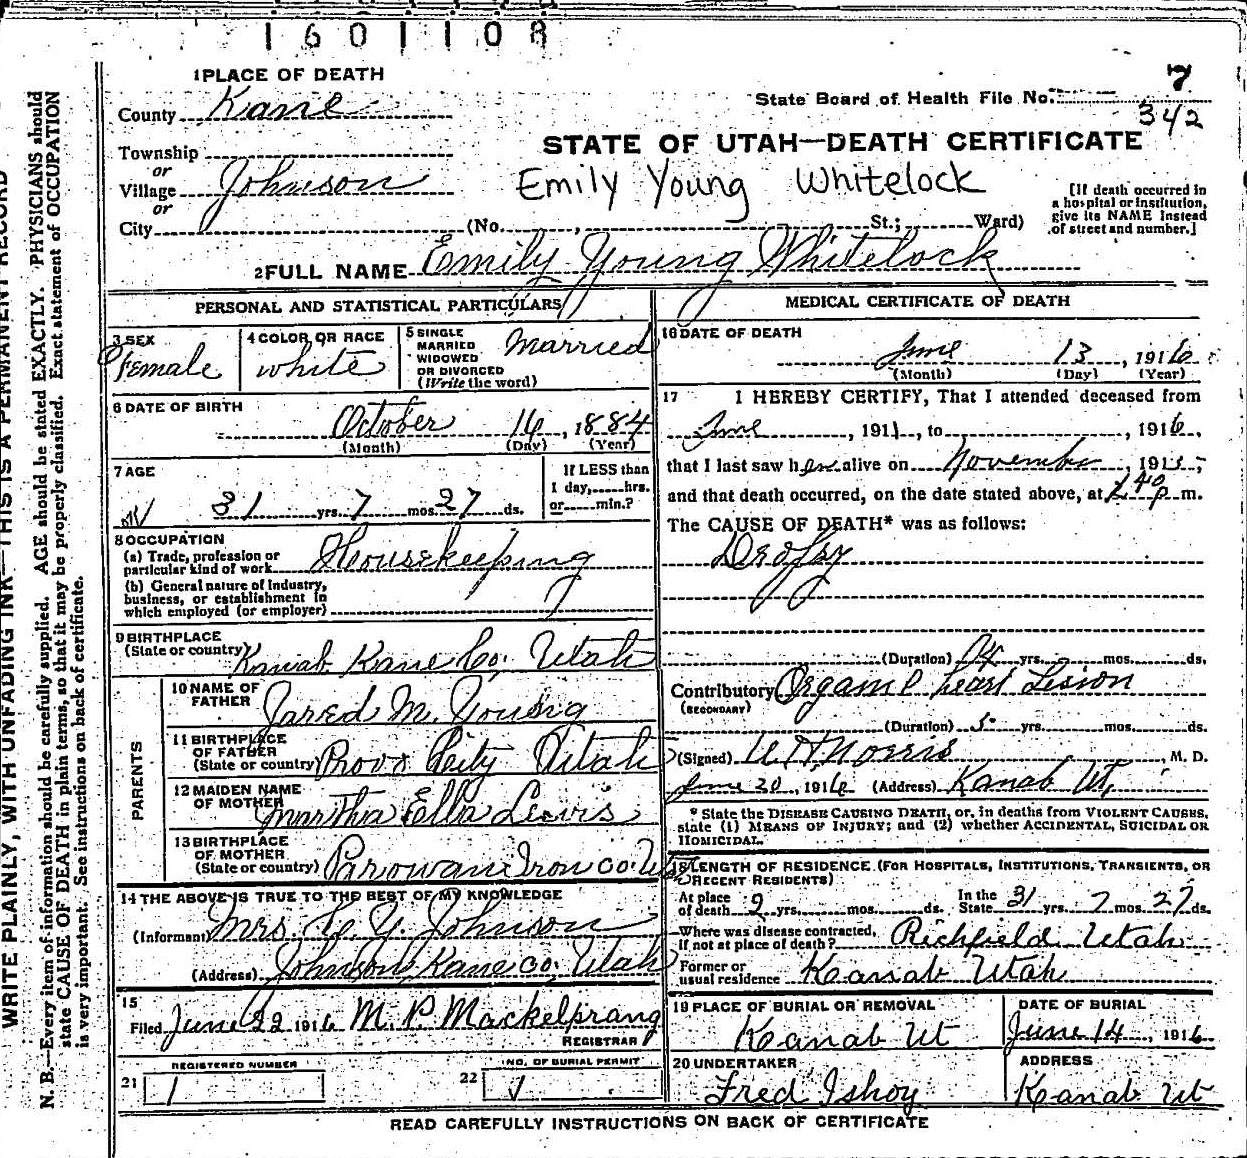 1601108
1 PLACE OF DEATH
County Kane
State Board of Health File No. 7
342
STATE OF UTAH—DEATH CERTIFICATE
Township
or
Village Johnson
or
City (No. , St.; Ward)
Emily Young Whitelock
[If death occurred in
a hospital or institution,
give its NAME instead
of street and number.]
2 FULL NAME Emily Young Whitelock
PERSONAL AND STATISTICAL PARTICULARS
3 SEX
Female
4 COLOR OR RACE
white
5 SINGLE
MARRIED
WIDOWED
OR DIVORCED
(Write the word)
Married
6 DATE OF BIRTH
October 16, 1884
(Month) (Day) (Year)
7 AGE
31 yrs. 7 mos. 27 ds.
If LESS than
1 day, hrs.
or min.?
8 OCCUPATION
(a) Trade, profession or
particular kind of work Housekeeping
(b) General nature of industry,
business, or establishment in
which employed (or employer)
9 BIRTHPLACE
(State or country) Kanab Kane Co. Utah
PARENTS
10 NAME OF
FATHER Jared M. Young
11 BIRTHPLACE
OF FATHER
(State or country) Provo City Utah
12 MAIDEN NAME
OF MOTHER Martha Ella Lewis
13 BIRTHPLACE
OF MOTHER
(State or country) Parowan Iron Co. Utah
14 THE ABOVE IS TRUE TO THE BEST OF MY KNOWLEDGE
(Informant) Mrs. Y. Johnson
(Address) Johnson Kane Co. Utah
15
Filed June 22 1916 M. P. Mackelprang
REGISTRAR
REGISTERED NUMBER
21 1
NO. OF BURIAL PERMIT
22
MEDICAL CERTIFICATE OF DEATH
16 DATE OF DEATH
June 13, 1916
(Month) (Day) (Year)
17 I HEREBY CERTIFY, That I attended deceased from
June, 1911, to , 1916,
that I last saw her alive on November, 1915,
and that death occurred, on the date stated above, at p m.
The CAUSE OF DEATH* was as follows:
Dropsy
(Duration) yrs. mos. ds.
Contributory Organic heart Lesion
(SECONDARY)
(Duration) 5 yrs. mos. ds.
(Signed) Norris, M. D.
June 20, 1916 (Address) Kanab Ut.
* State the DISEASE CAUSING DEATH, or, in deaths from VIOLENT CAUSES,
state (1) MEANS OF INJURY; and (2) whether ACCIDENTAL, SUICIDAL OR
HOMICIDAL.
18 LENGTH OF RESIDENCE (FOR HOSPITALS, INSTITUTIONS, TRANSIENTS, OR
RECENT RESIDENTS)
At place
of death 2 yrs. mos. ds.
In the
State 31 yrs. 7 mos. 27 ds.
Where was disease contracted,
If not at place of death? Richfield Utah
Former or
usual residence Kanab Utah
19 PLACE OF BURIAL OR REMOVAL
Kanab Ut
DATE OF BURIAL
June 14, 1916
20 UNDERTAKER
Fred Ishoy
ADDRESS
Kanab Ut
READ CAREFULLY INSTRUCTIONS ON BACK OF CERTIFICATE
WRITE PLAINLY, WITH UNFADING INK—THIS IS A PERMANENT RECORD
N. B.—Every item of information should be carefully supplied. AGE should be stated EXACTLY. PHYSICIANS should
state CAUSE OF DEATH in plain terms, so that it may be properly classified. Exact statement of OCCUPATION
is very important. See instructions on back of certificate.